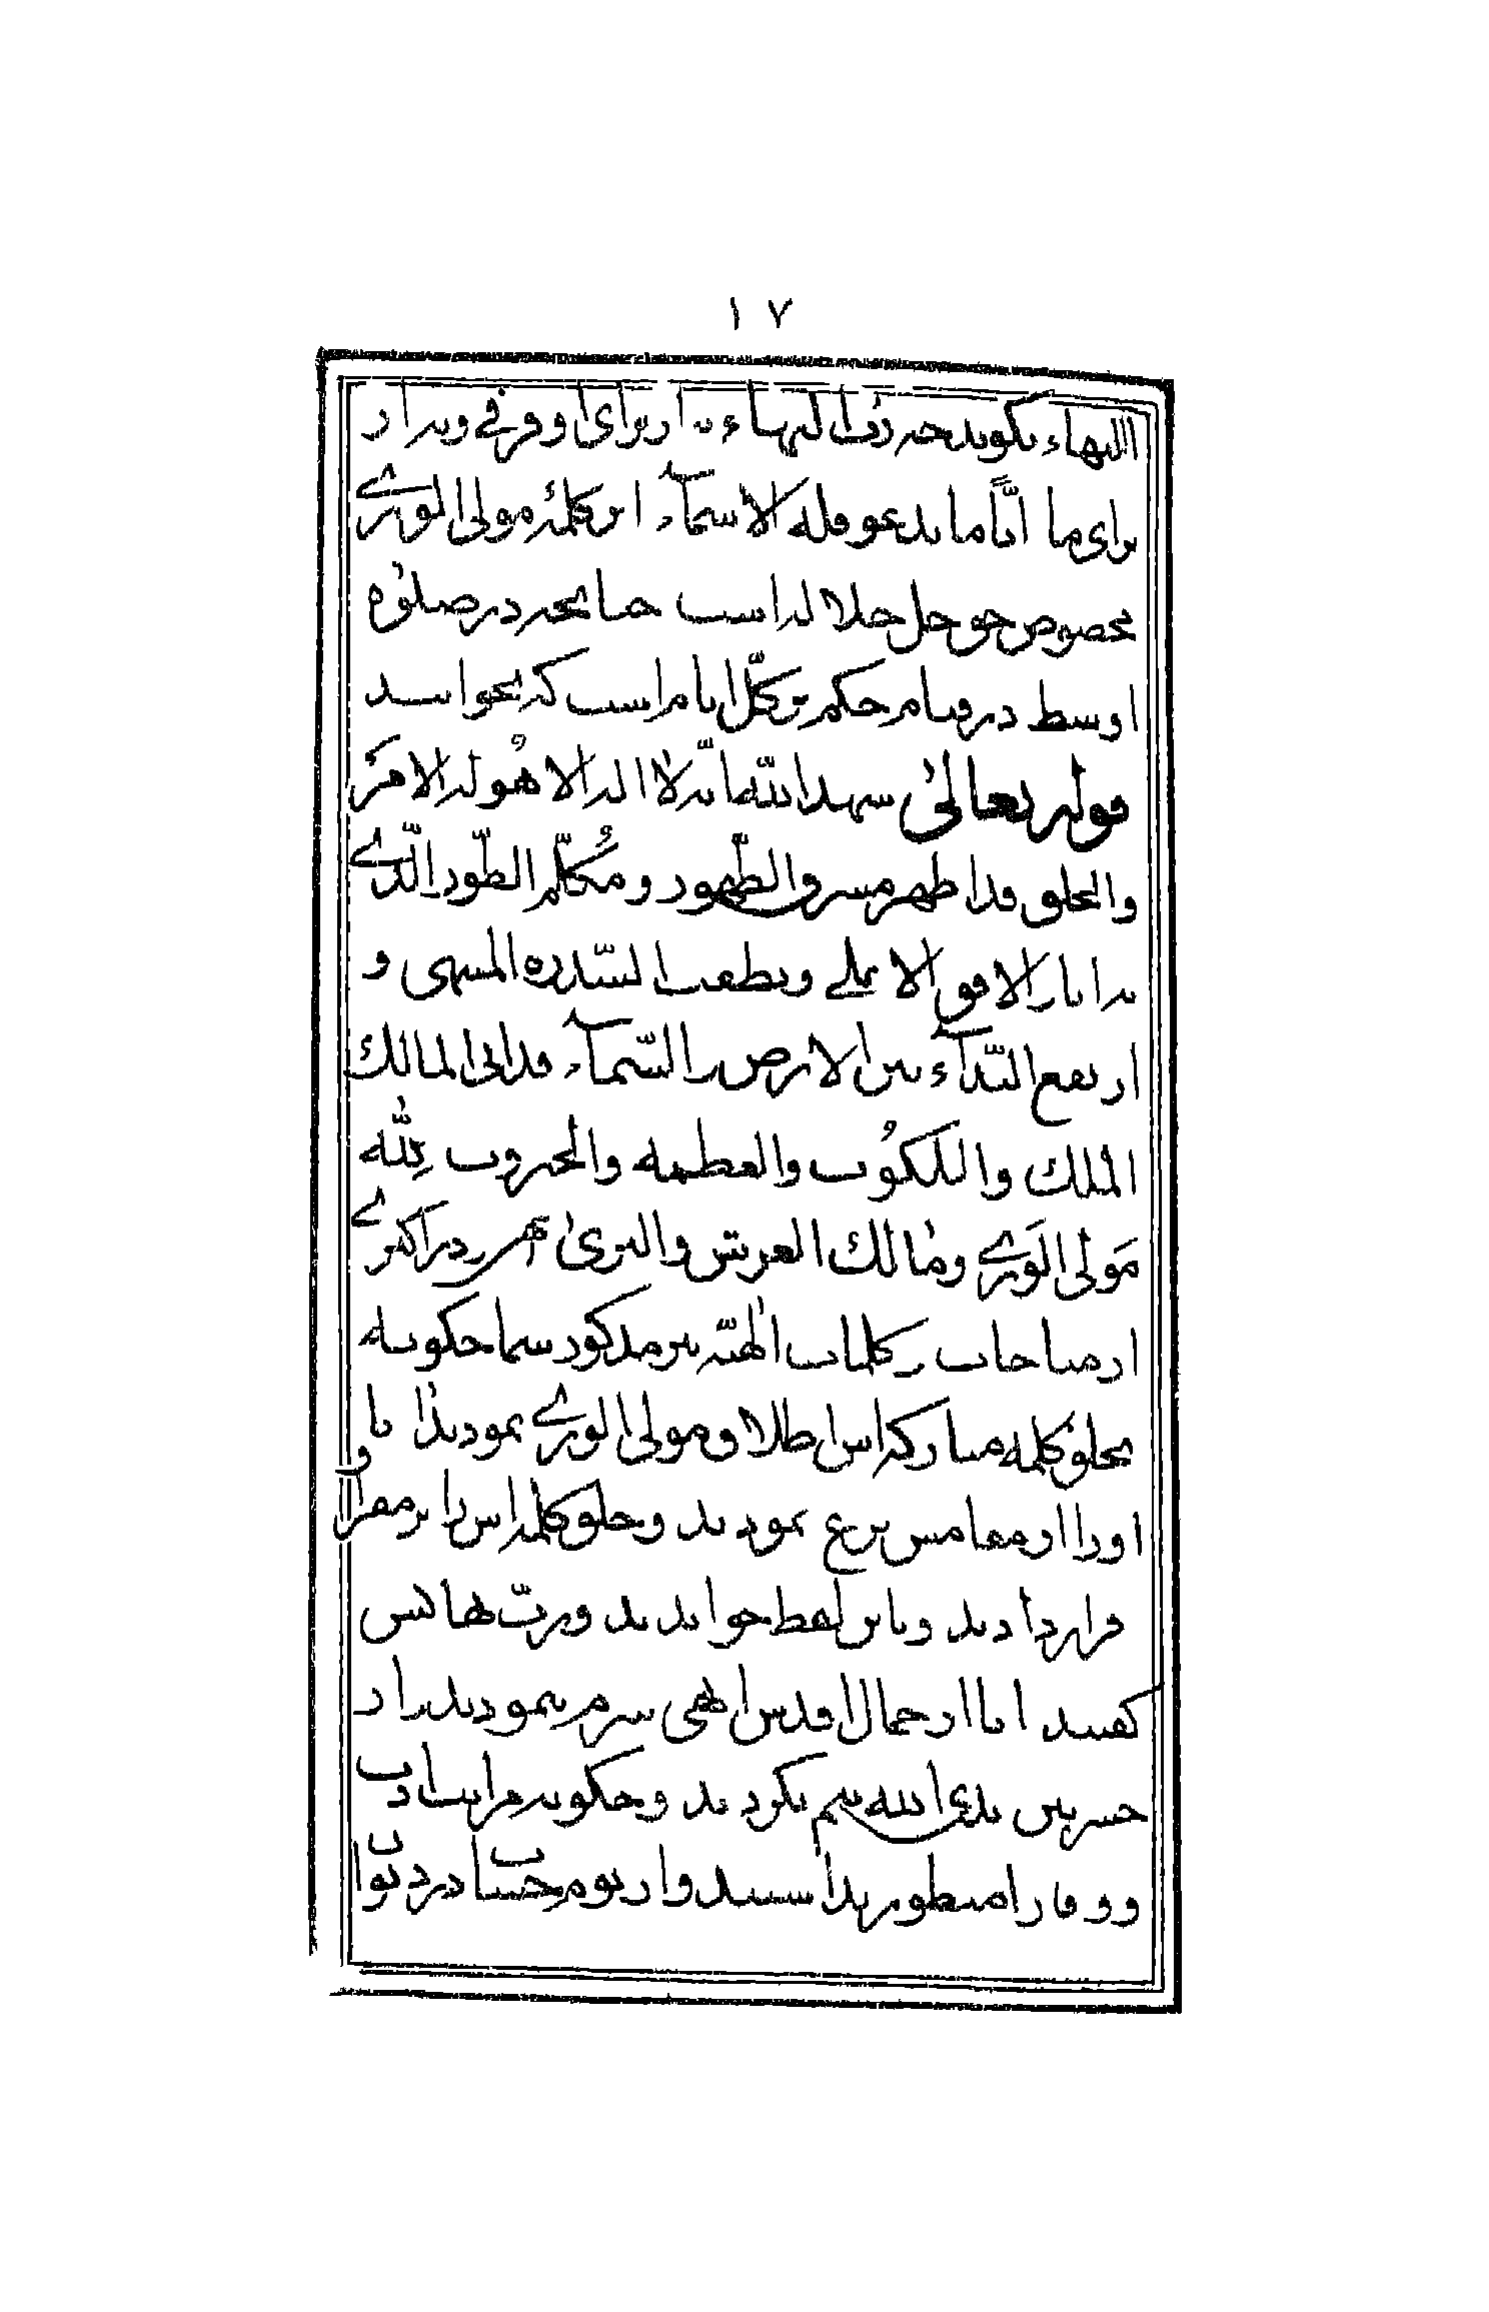 ١٧
البهاء بگوید چه ذی البهاء نه از برای او فرقی و نه از
برای ما ایّاً ما تدعوا فله الاسمآء این کلمهٔ مولی الوری
مخصوص حق جل جلاله است چنانچه در صلوٰة
اوسط در قیام حکم بر کلّ انام است که بخوانند
قوله تعالیٰ شهد الله انّه لا اله الا هُو له الامر
والخلق قد اظهر مشرق الظّهور ومُکلّم الطّور الّذی
به انار الافق الاعلی ونطقت السّدرة المنتهی و
ارتفع النّدآء بین الارض والسّمآء قد اتی المالک
الملک والملکُوت والعظمة والجبروت لِلّه
مَولی الوَری ومالک العرش والثریٰ همچنین در اکثری
از مناجات و کلمات الٰهیّه نیز مذکور شما چگونه
بخلق کلمه مبارکه است اطلاق مولی الوری نمودید آیا
او را از مقامش نزع نمودید و خلق کلمه اش را بر مقر او
قرار دادید و باین لفظ خواندید و ربّ ها لیس
گفتید آیا از جمال اقدس ابهی شرم ننمودید و از
حضرت من یدعی الله شرم نکردید و چگونه مراتب ادب
و وقار را منظور نداشتید و از یوم حساب در درد توا